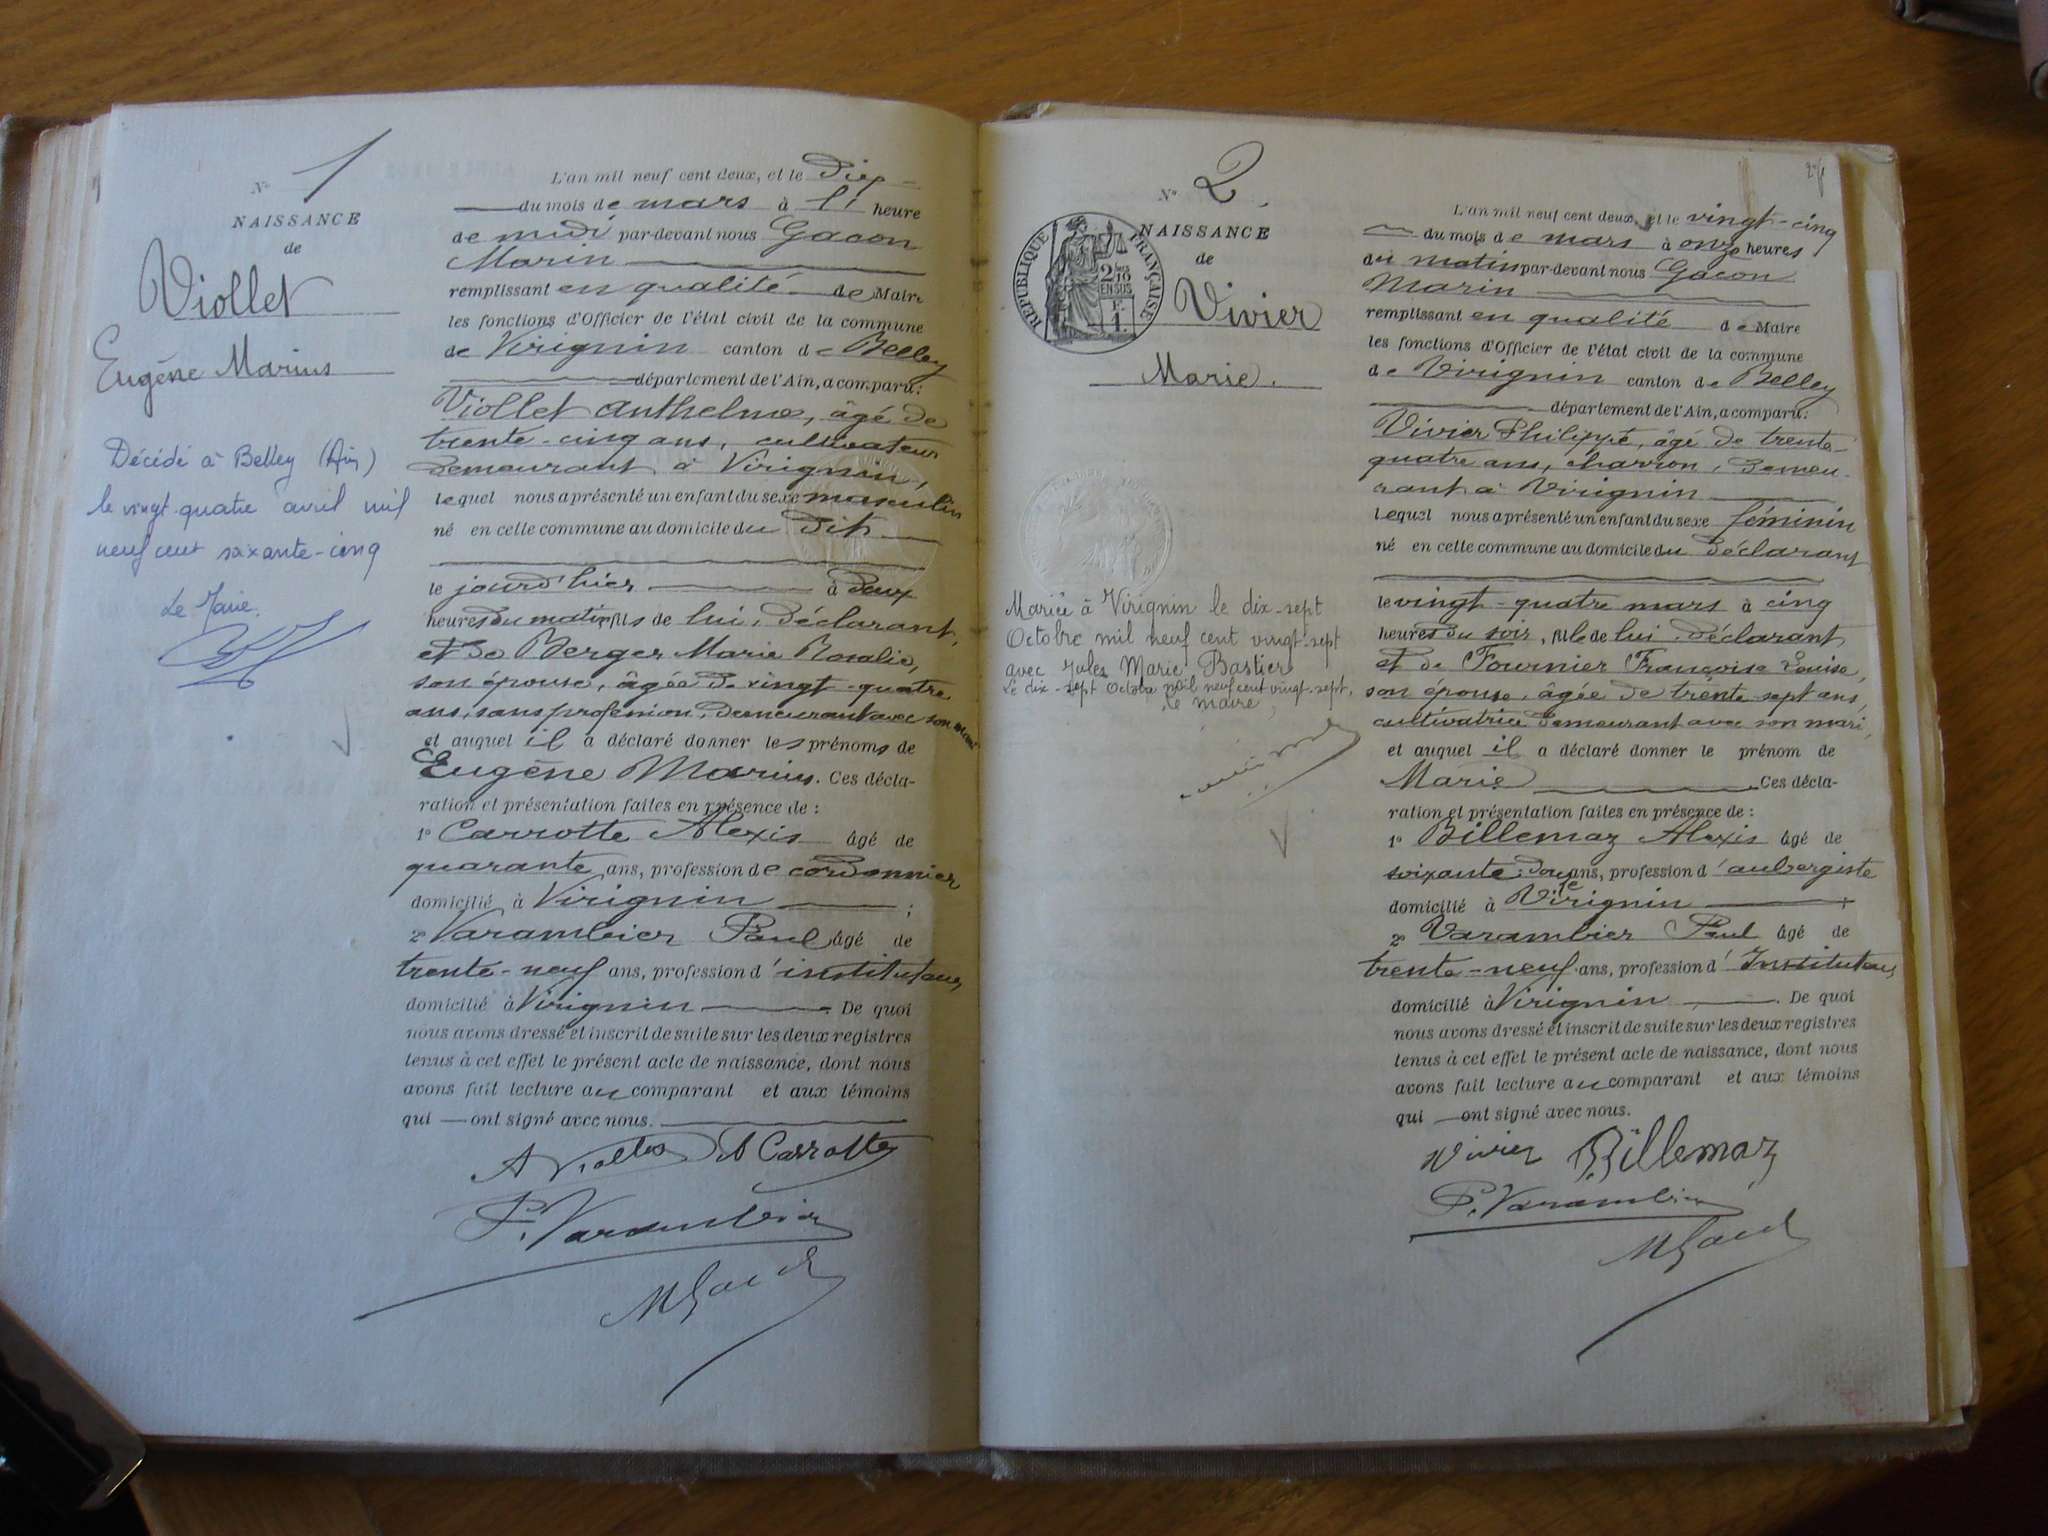 N° 1
NAISSANCE
de
Viollet
Eugène Marius
Décédé à Belley (Ain)
le vingt-quatre avril mil
neuf cent soixante-cinq
Le Maire.
L'an mil neuf cent deux, et le Dix
du mois de mars à l' heure
de midi par-devant nous Gacon
Marin
remplissant en qualité de Maire
les fonctions d'Officier de l'état civil de la commune
de Virignin canton de Belley
département de l'Ain, a comparu:
Viollet Anthelme, âgé de
trente-cinq ans, cultivateur
demeurant à Virignin,
lequel nous a présenté un enfant du sexe masculin
né en cette commune au domicile du dit
le jourd'hier à deux
heures du matin, fils de lui, déclarant,
et de Berger Marie Rosalie,
son épouse, âgée de vingt-quatre
ans, sans profession, demeurant avec son mari
et auquel il a déclaré donner les prénoms de
Eugène Marius. Ces décla-
ration et présentation faites en présence de :
1° Carrotte Alexis âgé de
quarante ans, profession de cordonnier
domicilié à Virignin ;
2° Varambier Paul âgé de
trente-neuf ans, profession d'instituteur
domicilié à Virignin. De quoi
nous avons dressé et inscrit de suite sur les deux registres
tenus à cet effet le présent acte de naissance, dont nous
avons fait lecture au comparant et aux témoins
qui ont signé avec nous.
A Viollet A Carrotte
P. Varambier
M Gacon
27
N° 2
NAISSANCE
de
RÉPUBLIQUE FRANÇAISE
2/10 EN SUS
Vivier
Marie.
Mariée à Virignin le dix-sept
Octobre mil neuf cent vingt-sept
avec Jules Marie Bastier
Le dix-sept Octobre mil neuf cent vingt-sept,
le maire,
L'an mil neuf cent deux, et le vingt-cinq
du mois de mars à onze heures
du matin par-devant nous Gacon
Marin
remplissant en qualité de Maire
les fonctions d'Officier de l'état civil de la commune
de Virignin canton de Belley
département de l'Ain, a comparu:
Vivier Philippe, âgé de trente-
quatre ans, charron, demeu-
rant à Virignin
lequel nous a présenté un enfant du sexe féminin
né en cette commune au domicile du déclarant
le vingt-quatre mars à cinq
heures du soir, fille de lui, déclarant
et de Fournier Françoise Louise,
son épouse, âgée de trente-sept ans,
cultivatrice demeurant avec son mari,
et auquel il a déclaré donner le prénom de
Marie Ces décla-
ration et présentation faites en présence de :
1° Billemaz Alexis âgé de
soixante-dou ans, profession d'aubergiste
domicilié à Virignin ;
2° Varambier Paul âgé de
trente-neuf ans, profession d'Instituteur
domicilié à Virignin. De quoi
nous avons dressé et inscrit de suite sur les deux registres
tenus à cet effet le présent acte de naissance, dont nous
avons fait lecture au comparant et aux témoins
qui ont signé avec nous.
Vivier Billemaz
P. Varambier
M Gacon